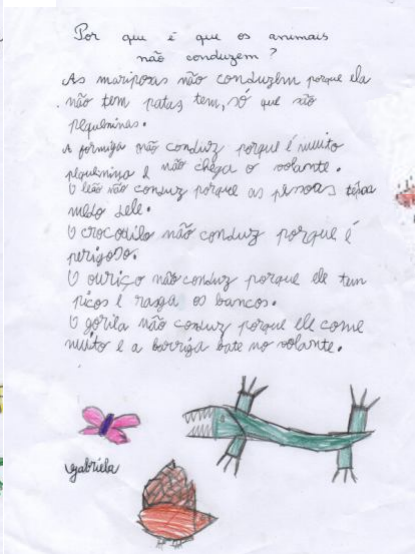 Por que é que os animais
não conduzem?
As mariposas não conduzem porque ela
não tem patas tem, só que são
pequeninas.
A formiga não conduz porque é muito
pequenina e não chega o volante.
O leão não conduz porque as pessoas
medo dele.
O crocodilo não conduz porque é
perigoso.
O ouriço não conduz porque ele tem
picos e rasga os bancos.
O gorila não conduz porque ele come
muito e a barriga bate no volante.
Gabriela